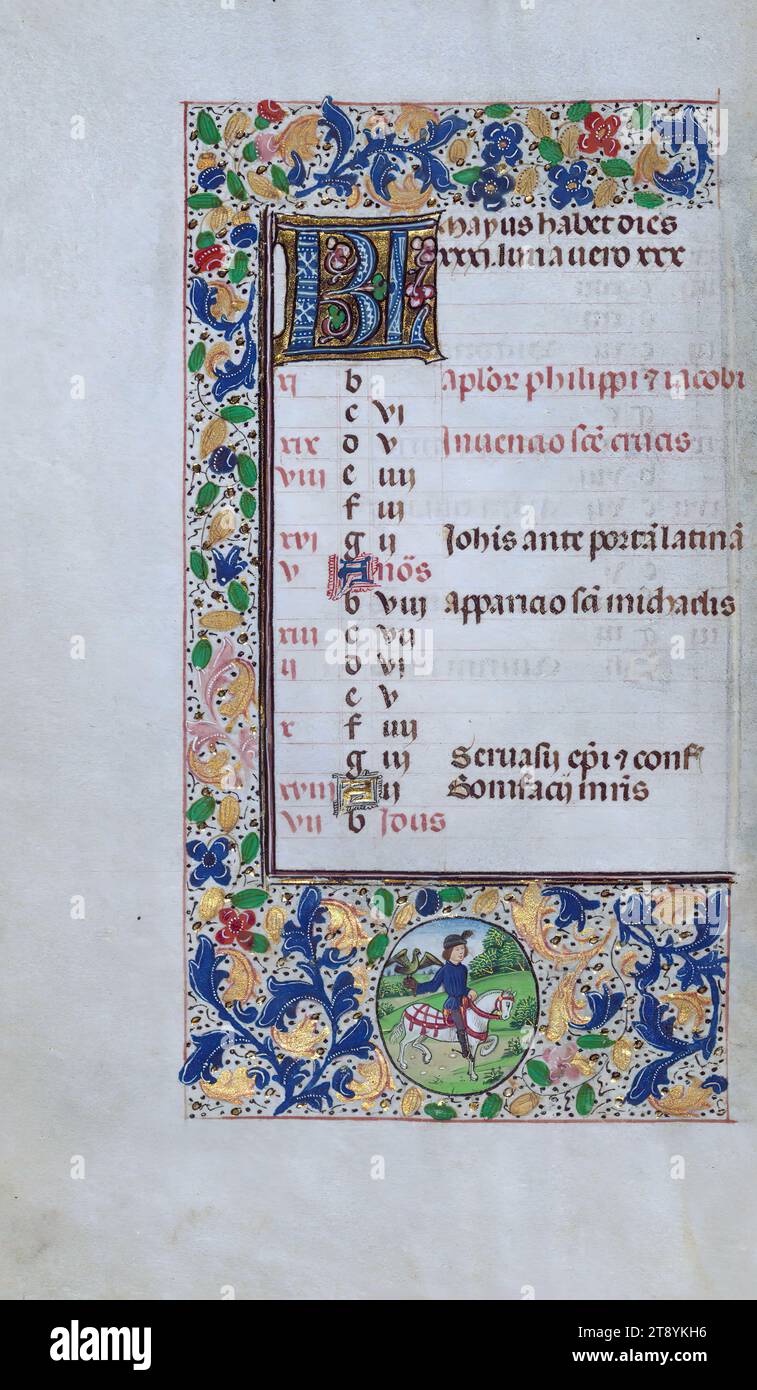 KL Mayus habet dies
XXXI. luna vero xxx
xj b Aplor philippi ⁊ iacobi
c vj
xix d v Invencio sce crucis
viij e iiij
f iij
xvj g ij Johis ante portā latinā
v A nōs
b viij Apparicio sci michaelis
xiij c vij
ij d vj
e v
x f iiij
g iij Servasij epi ⁊ conf
xviij A ij Bonifacij mris
vij b Idus
alamy
Image ID: 2T8YKH6
www.alamy.com